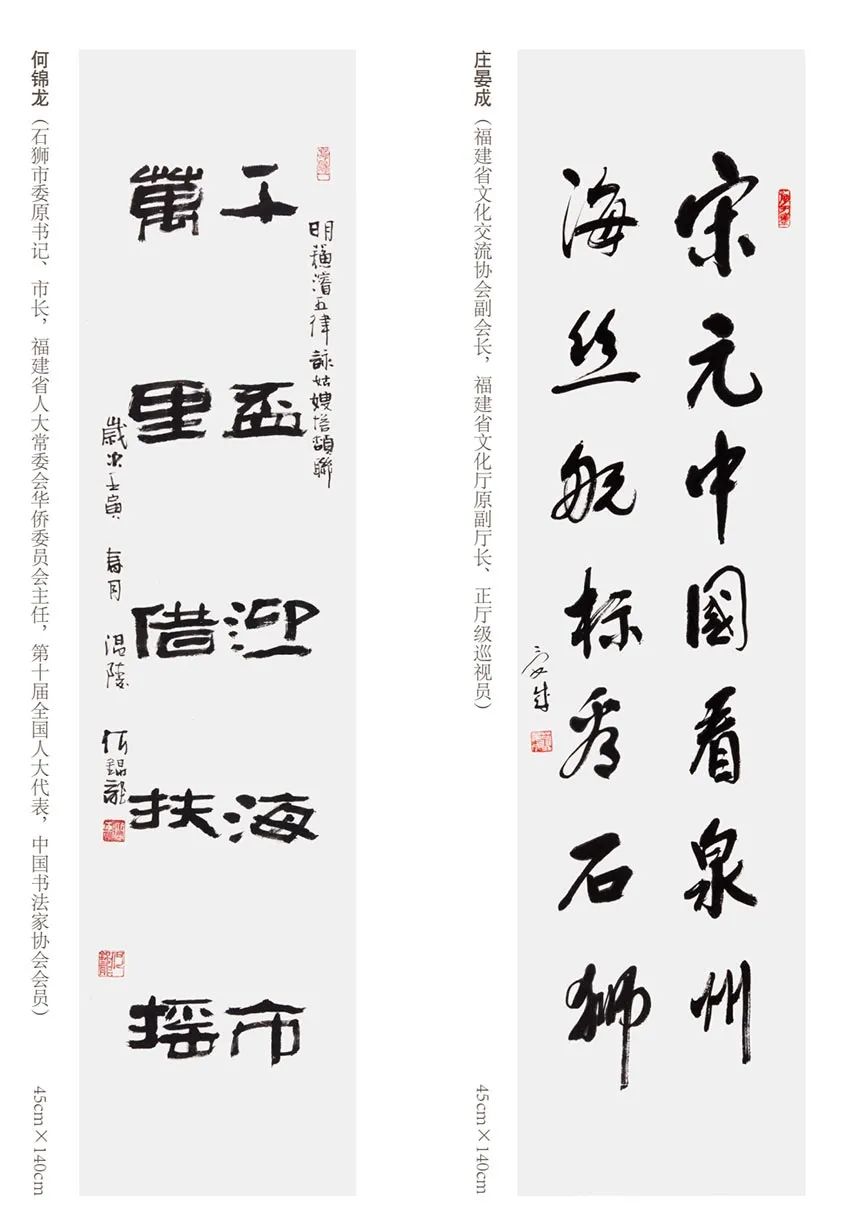 宋元中國看泉州
海丝航标看石狮
晏成
庄晏成（福建省文化交流协会副会长，福建省文化厅原副厅长、正厅级巡视员）
45cm×140cm
明穌濬五律 詠姑嫂塔頷聯
千盃迎海市
萬里借扶摇
歲次壬寅 春月 温陵 何錦龍
何锦龙（石狮市委原书记、市长，福建省人大常委会华侨委员会主任，第十届全国人大代表，中国书法家协会会员）
45cm×140cm